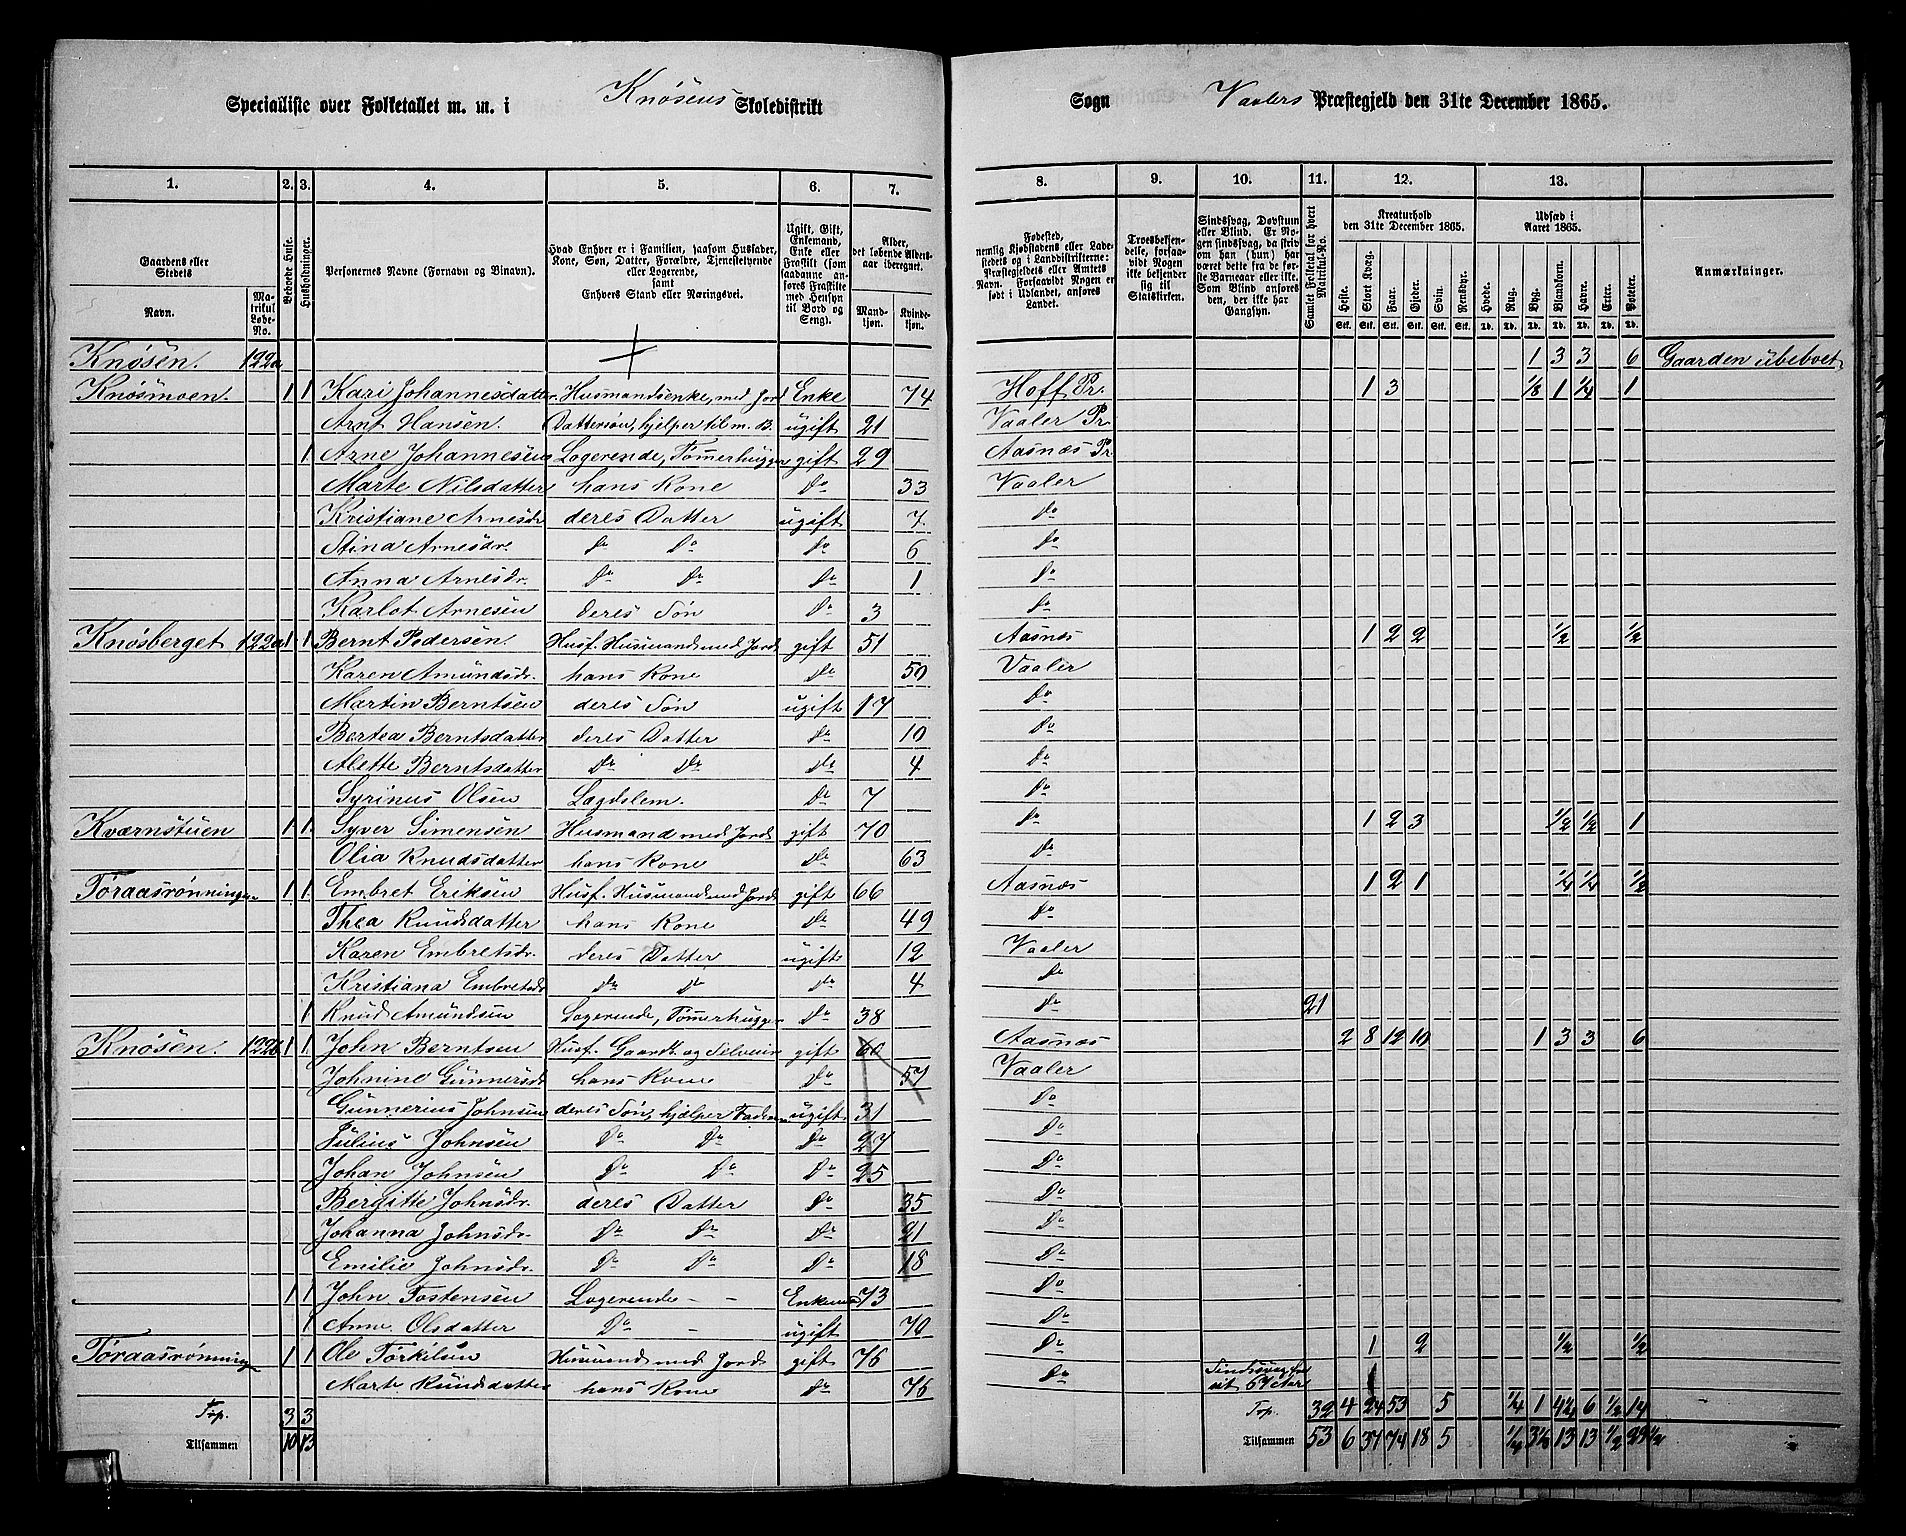 Specialliste over Folketallet m. m. i Knøsens Skoledistrikt
Sogn Vaalers Præstegjeld den 31te December 1865.
1. 2. 3. 4. 5. 6. 7. 8. 9. 10. 11. 12. 13.
Gaardens eller Stedets
Navn. Matrikul Løbe-No.
Beboede Huse.
Husholdninger.
Personernes Navne (Fornavn og Binavn).
Hvad Enhver er i Familien, saasom Husfader, Kone, Søn, Datter, Forældre, Tjenestetyende eller Logerende, samt Enhvers Stand eller Næringsvei.
Ugift, Gift, Enkemand, Enke eller Fraskilt (som saadanne anføres Fraskilte med Hensyn til Bord og Seng).
Alder, det løbende Aldersaar iberegnet.
Mandkjøn. Kvindekjøn.
Fødested, nemlig Kjøbstadens eller Ladestedets og i Landdistrikterne: Præstegjeldets eller Amtets Navn. Forsaavidt Nogen er født i Udlandet, anføres Landet.
Troesbekjendelse, forsaavidt Nogen ikke bekjender sig til Statskirken.
Sindssvag, Døvstum eller Blind. Er Nogen sindssvag, da skriv om han (hun) har været dette fra de første Barneaar eller ikke. Som Blind anføres den, der ikke har Gangsyn.
Samlet Folketal for hvert Matrikul-No.
Kreaturhold den 31te December 1865.
Heste. Stort Kvæg. Faar. Gjeder. Svin. Rensdyr.
Udsæd i Aaret 1865.
Hvede. Rug. Byg. Blandkorn. Havre. Erter. Poteter.
Anmærkninger.
Knøsen. 122a 1 3 3 6 Gaarden ubeboet
Knøsmoen. 1 1 Kari Johannesdatter Husmandsenke, med Jord Enke 74 Hoff Pr. 1 3 1/8 1 1/4 1
Arnt Hansen. Dattersøn, hjelper til m. B. ugift 21 Vaaler Pr
1 Arne Johannesen Logerende, Tømerhugger gift 29 Aasnæs Pr
Marte Nilsdatter hans Kone Do 33 Vaaler
Kristiane Arnesdr deres Datter ugift 7 Do
Stina Arnesdr. Do Do Do 6 Do
Anna Arnesdr. Do Do Do 1 Do
Karlot Arnesen deres Søn Do 3 Do
Knøsberget 122a 1 1 Bernt Pedersen. Husf. Husmand med Jord gift 51 Aasnæs 1 2 2 1/2 1/2
Karen Amundsdr. hans Kone Do 50 Vaaler
Martin Berntsen deres Søn ugift 17 Do
Bertea Berntsdatter deres Datter Do 10 Do
Alette Berntsdatter Do Do Do 4 Do
Syrinus Olsen Lægdslem. Do 7 Do
Kværnstuen 1 1 Syver Simensen Husmand med Jord gift 70 Do 1 2 3 1/2 1/2 1
Olia Knudsdatter hans Kone Do 63 Do
Toraasrønningen 1 1 Embret Eriksen Husf. Husmand med Jord gift 66 Aasnæs 1 2 1 1/4 1/4 1/2
Thea Knudsdatter hans Kone Do 49 Do
Karen Embretsdr. deres Datter ugift 12 Vaaler
Kristiana Embretsdr Do Do Do 4 Do
1 Knud Amundsen Logerende, Tømerhugger Do 38 Do 21
Knøsen. 122b 1 1 John Berntsen Husf. Gaardb. og Selveier gift 60 Aasnæs 2 8 12 10 1 3 3 6
Johnine Gunnersdr hans Kone Do 57 Vaaler
Gunnerius Johnsen deres Søn, hjælper Faderen ugift 31 Do
Julius Johnsen Do Do Do 27 Do
Johan Johnsen Do Do Do 25 Do
Bergitte Johnsdr. deres Datter Do 35 Do
Johanna Johnsdr. Do Do Do 21 Do
Emilie Johnsdr. Do Do Do 18 Do
1 1 John Tostensen Logerende - - Enkemand 73 Do
1 Anne Olsdatter Do - ugift 70 Do
Toraasrønning 1 1 Ole Torkilsen Husmand med Jord gift 76 Do 1 2 1/2 1/2
Marte Knudsdatter hans Kone Do 76 Do Sindssvag
Trp. 3 3 Trp. 32 4 24 53 5 1/4 1 4 1/4 6 1/2 14
Tilsammen 10 13 Tilsammen 53 6 37 74 18 5 1/4 3 1/8 13 13 1/2 29 1/2